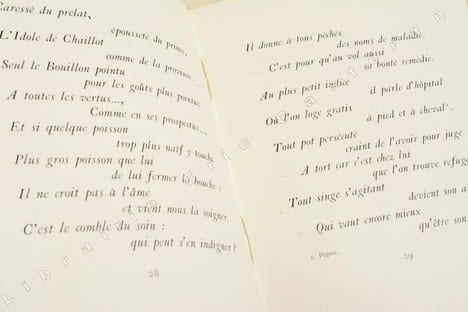 Caressé du prélat,
épousseté du prince,
L'Idole de Chaillot
comme de la province.
Seul le Bouillon pointu
pour les goûts plus pointus
A toutes les vertus...,
Comme en ses prospectus...,
Et si quelque poisson
trop plus naïf y touche
Plus gros poisson que lui
de lui fermer la bouche :
Il ne croit pas à l'âme
et vient nous la soigner.
C'est le comble du soin :
qui peut s'en indigner ?
28
Il donne à tous péchés
des noms de maladie.
C'est pour qu'au vol aussi
sa bonté remédie.
Au plus petit indice
il parle d'hôpital
Où l'on loge gratis
à pied et à cheval¹.
Tout pot persécuté
craint de l'avoir pour juge
A tort car c'est chez lui
que l'on trouve refuge
Tout singe s'agitant
devient son
Qui vaut encore mieux
qu'être son
1. Pégase.
29